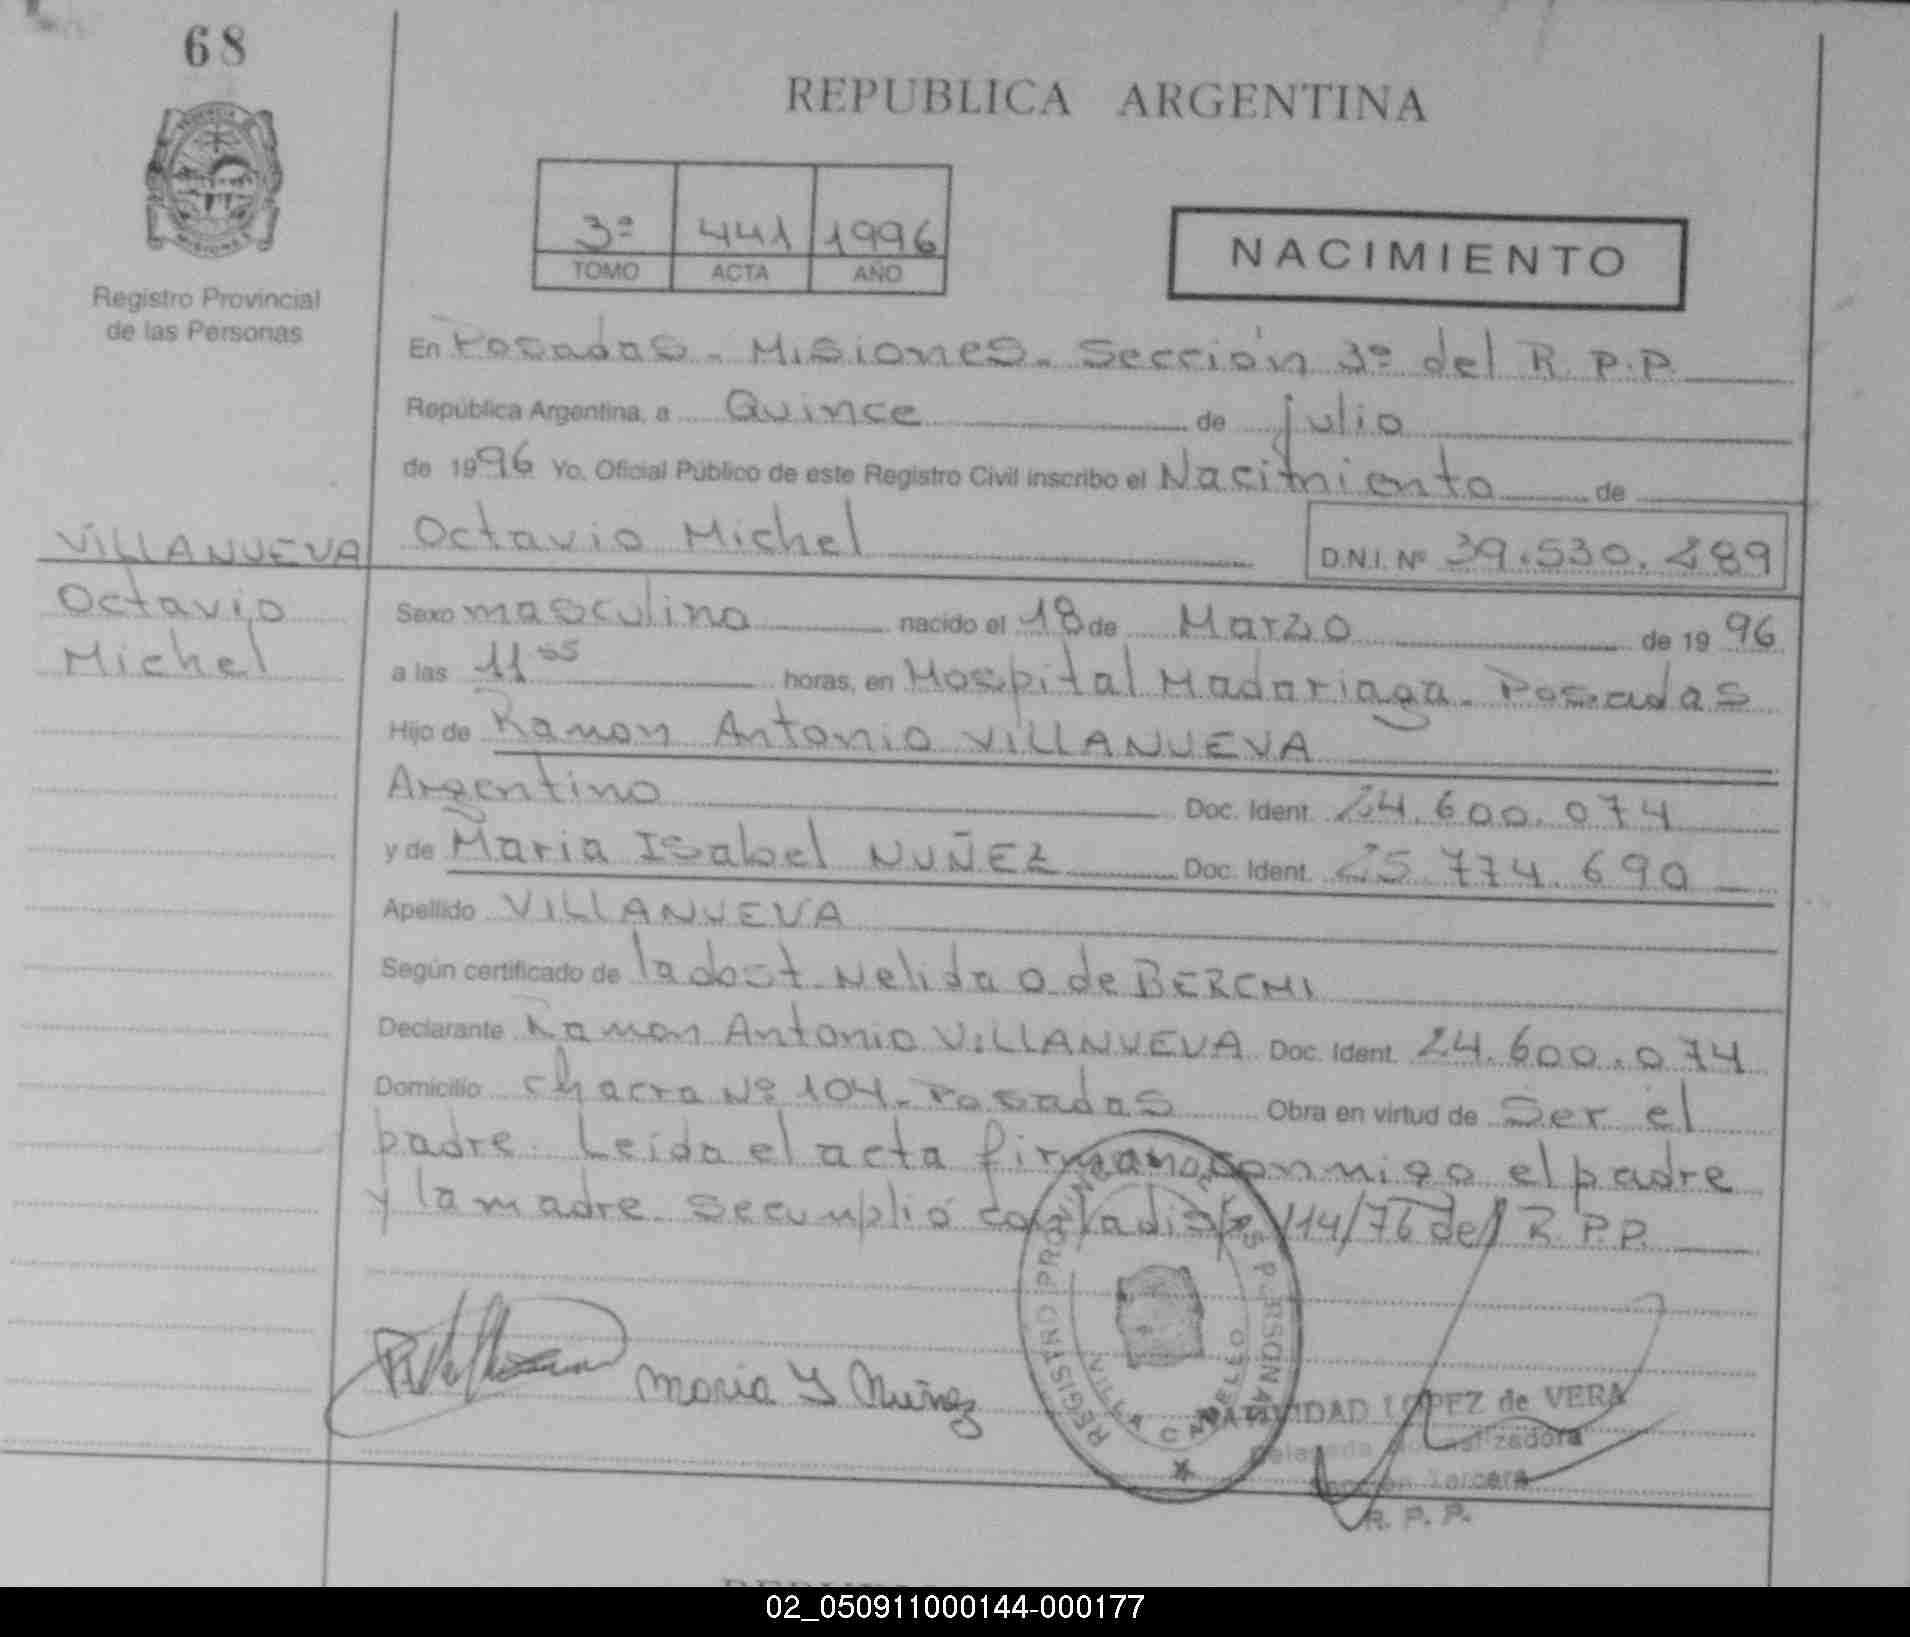 68
REPUBLICA ARGENTINA
3º 441 1996
TOMO ACTA AÑO
NACIMIENTO
Registro Provincial
de las Personas
En Posadas - Misiones - Sección 3º del R.P.P.
República Argentina, a Quince de julio
de 1996 Yo, Oficial Público de este Registro Civil inscribo el Nacimiento de
VILLANUEVA Octavio Michel D.N.I. Nº 39.530.289
Octavio
Michel
Sexo masculino nacido el 18 de Marzo de 1996
a las 11 55 horas, en Hospital Madariaga - Posadas
Hijo de Ramon Antonio VILLANUEVA
Argentino Doc. Ident. 24.600.074
y de Maria Isabel NUÑEZ Doc. Ident. 25.774.690
Apellido VILLANUEVA
Según certificado de la obst. Nelida O de
Declarante Ramon Antonio VILLANUEVA Doc. Ident. 24.600.074
Domicilio chacra Nº 104 - Posadas Obra en virtud de Ser el
padre. Leída el acta firman conmigo el padre
y la madre. Se cumplió con la disp. 114/76 del R.P.P.
Maria Y Nuñez
REGISTRO PROVINCIAL DE LAS PERSONAS
VILLA CABELLO
NATIVIDAD LOPEZ de VERA
Delegada Normalizadora
Sección Tercera
R. P. P.
02_050911000144-000177